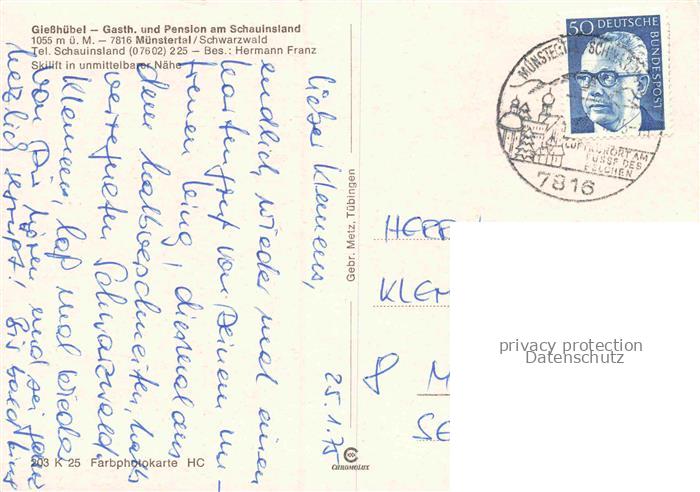 Gießhübel – Gasth. und Pension am Schauinsland
1055 m ü. M. – 7816 Münstertal/Schwarzwald
Tel. Schauinsland (07602) 225 – Bes.: Hermann Franz
Skilift in unmittelbarer Nähe
lieber Klemens,
endlich wieder mal einen
kartengruß von Deinem un-
treuen
dem halbverschneiten, halb
verregneten Schwarzwald.
Klemens, laß mal wieder
von Dir hören und sei ganz
herzlich gegrüßt! Bis bald
25.1.75
203 K 25 Farbphotokarte HC
Gebr. Metz, Tübingen
CHROMOLUX
50 DEUTSCHE BUNDESPOST
LUFTKURORT AM
FUSSE DES
BELCHEN
7816
HERRN
KLEM
8 M
SE
privacy protection
Datenschutz